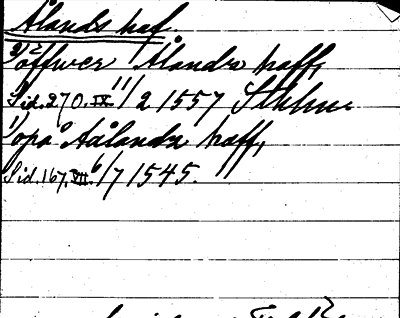 Ålands haf.
2) öffwer Ålandz haff,
Sid. 270. IX 11/2 1557 Sthlm.
1) opå Aålandz haff,
Sid. 167. VII. 6/7 1545.